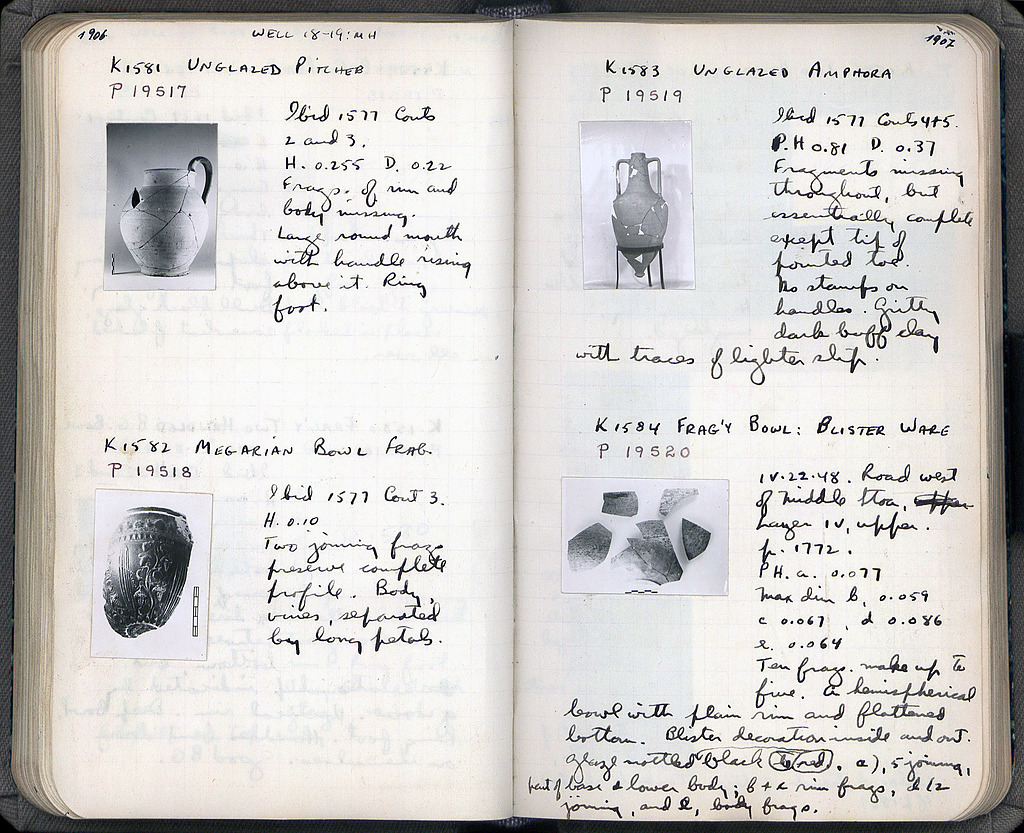 1906
WELL 18-19:MH
K1581 UNGLAZED PITCHER
P 19517
Ibid 1577 Conts
2 and 3.
H. 0.255 D. 0.22
Frags. of rim and
body missing.
Large round mouth
with handle rising
above it. Ring
foot.
K1582 MEGARIAN BOWL FRAG.
P 19518
Ibid 1577 Cont 3.
H. 0.10
Two joining frags
preserve complete
profile. Body,
vines, separated
by long petals.
1907
K1583 UNGLAZED AMPHORA
P 19519
Ibid 1577 Conts 4+5.
P.H 0.81 D. 0.37
Fragments missing
throughout, but
essentially complete
except tip of
pointed toe.
No stamps on
handles. Gritty
dark buff clay
with traces of lighter slip.
K1584 FRAG'Y BOWL: BLISTER WARE
P 19520
IV.22.48. Road west
of Middle Stoa,
Layer IV, upper.
p. 1772.
PH. a. 0.077
Max dim b, 0.059
c 0.067, d 0.086
e. 0.064
Ten frags. make up to
five. A hemispherical
bowl with plain rim and flattened
bottom. Blister decoration inside and out.
Glaze mottled black to red. a), 5 joining,
part of base & lower body; b + c rim frags, d 2
joining, and e, body frags.